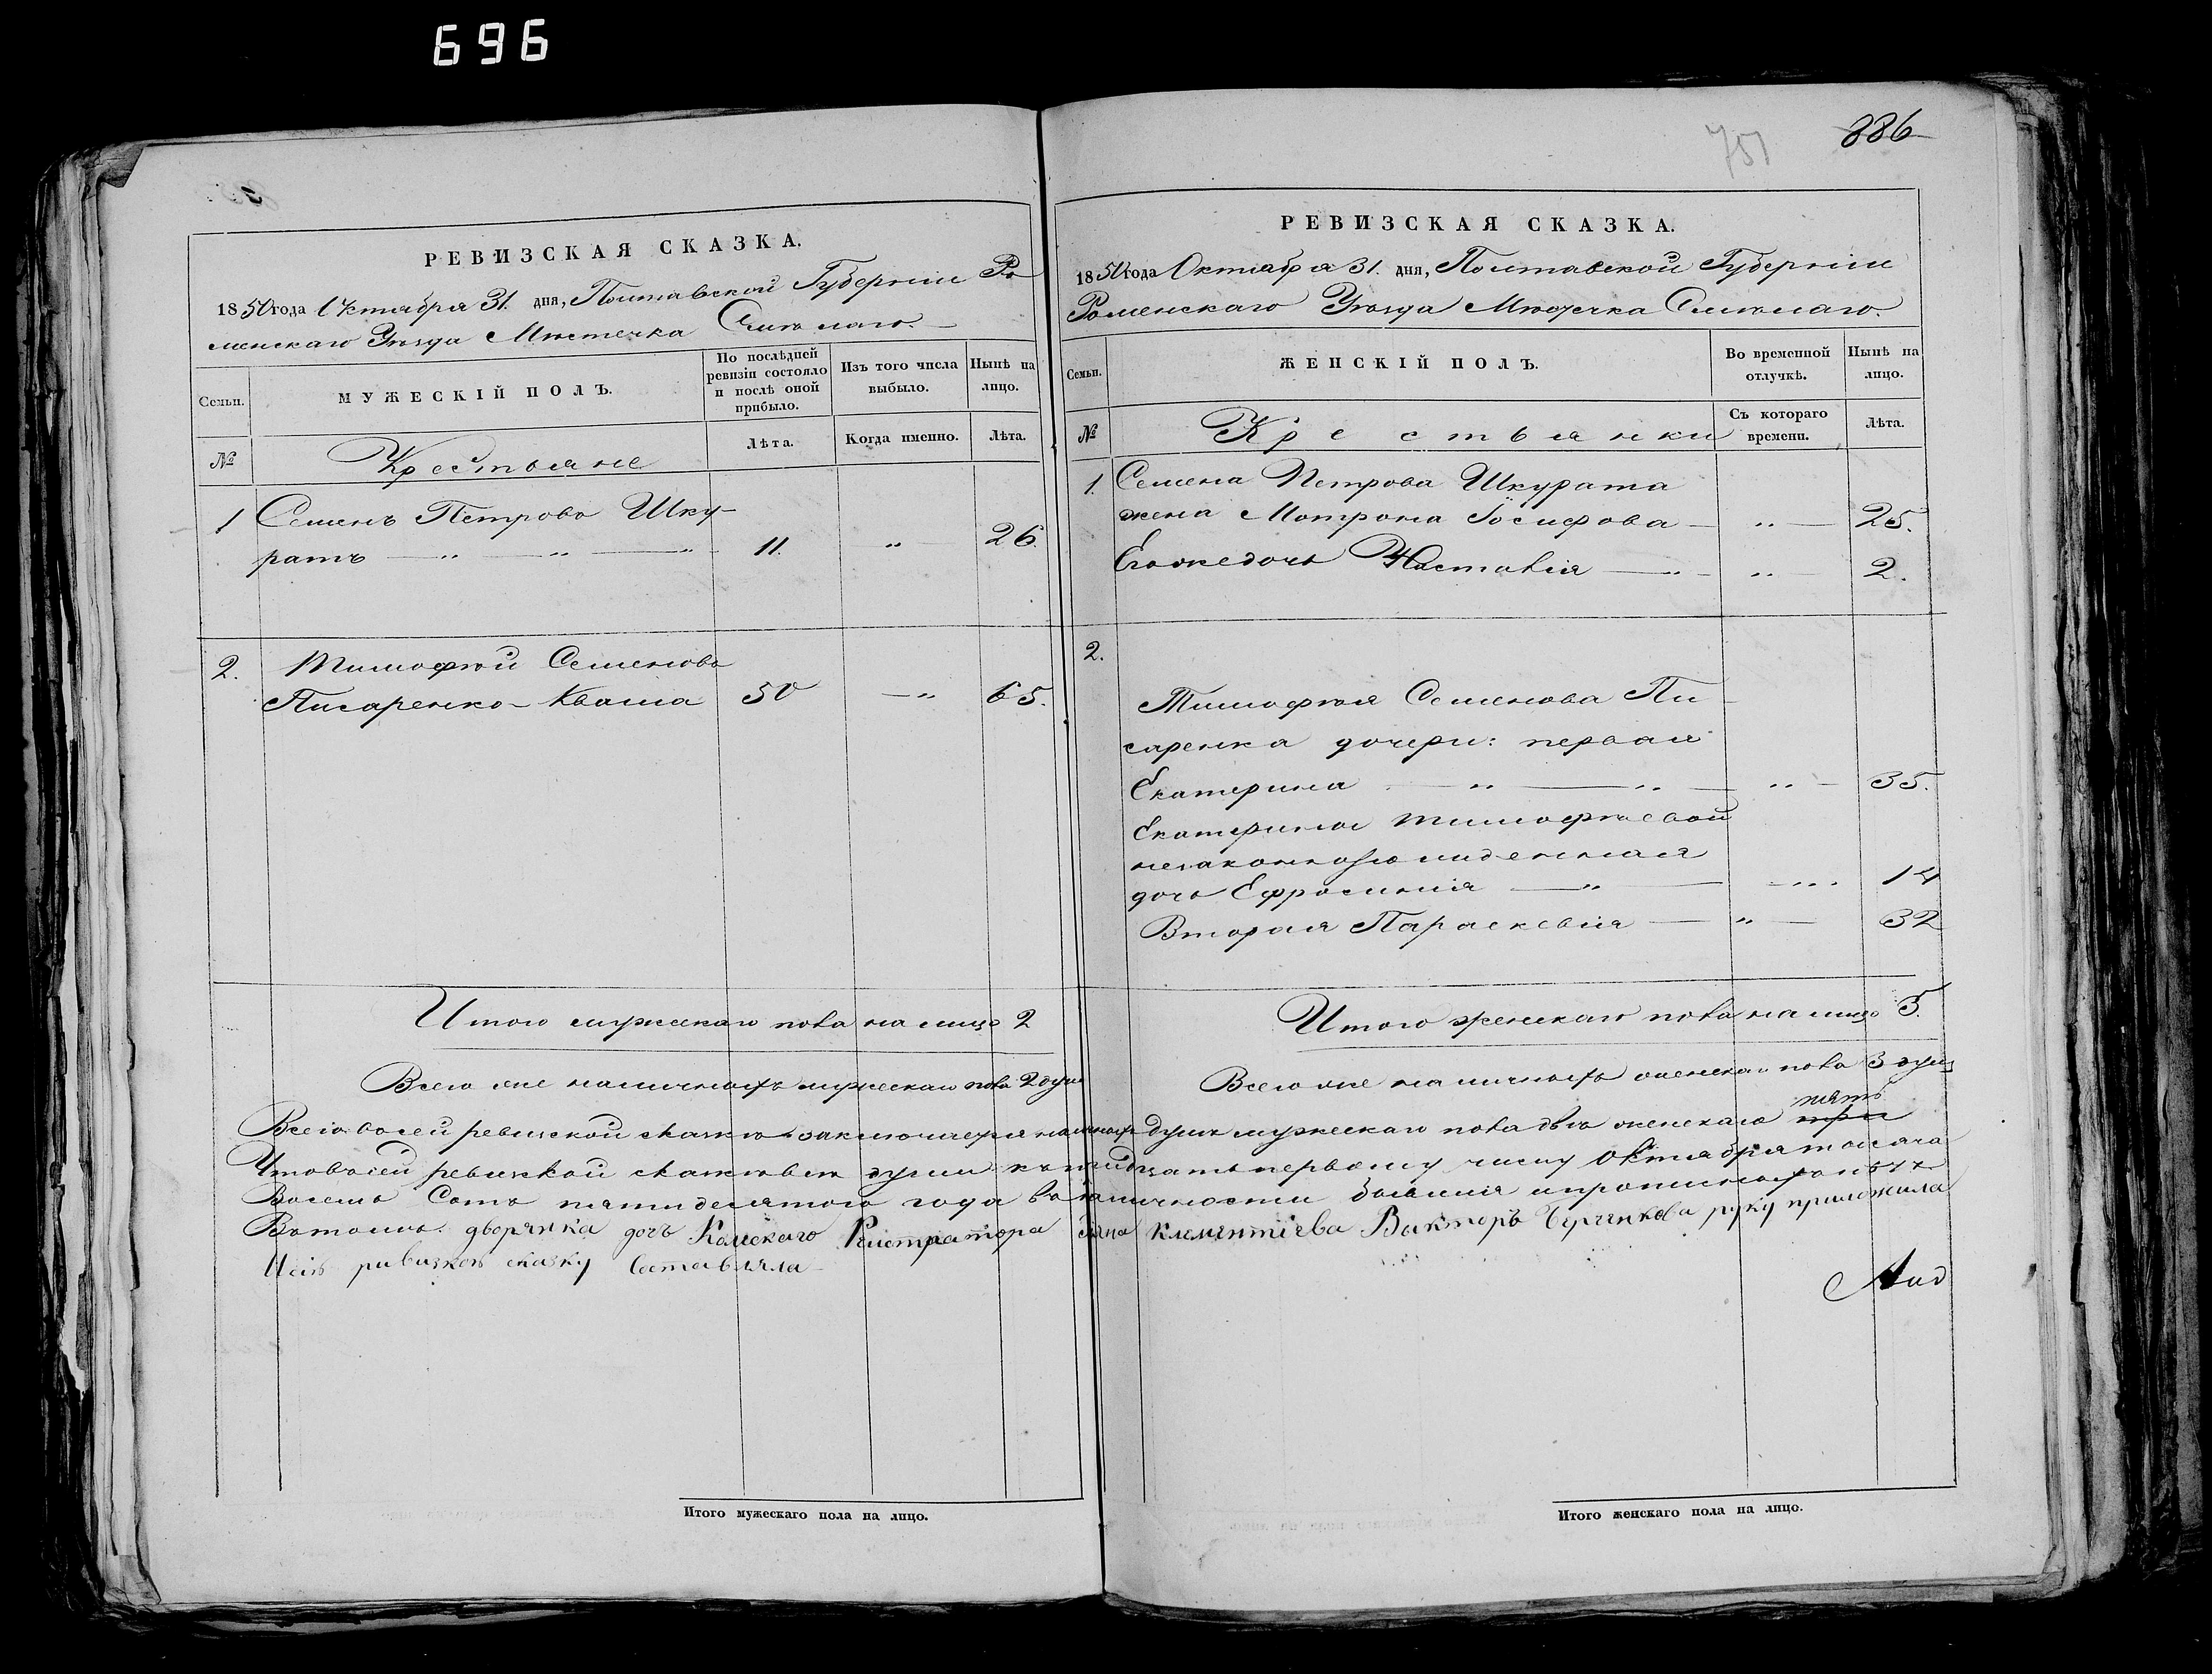 696
РЕВИЗСКАЯ СКАЗКА.
1850 года Октября 31. дня, Полтавской Губерніи Ро
менскаго Уѣзда Мѣстечка Смѣлаго.
Семьи.
МУЖЕСКІЙ ПОЛЪ.
По послѣдней ревизіи состояло и послѣ оной прибыло.
Изъ того числа выбыло.
Нынѣ на лицо.
№
Крестьяне
Лѣта.
Когда именно.
Лѣта.
1 Семенъ Петровъ Шку-
ратъ — „ — „ — „ 11. „ 26.
2. Тимофѣй Семеновъ
Писаренко-Кваша 50 — „ 65.
Итого мужескаго пола на лицо 2
Всего же наличныхъ мужескаго пола 2 души
886
751
РЕВИЗСКАЯ СКАЗКА.
1850 года Октября 31. дня, Полтавской Губерніи
Роменскаго Уѣзда Мѣстечка Смѣлаго.
Семьи.
ЖЕНСКІЙ ПОЛЪ.
Во временной отлучкѣ.
Нынѣ на лицо.
№
Крестьянки
Съ котораго времени.
Лѣта.
1. Семена Петрова Шкурата
жена Мотрона Іосифова — „ — 25.
Его же дочь Настасія — „ — „ — 2.
2.
Тимофѣя Семенова Пи-
саренка дочери: первая
Екатерина — „ — „ — „ — 35.
Екатерины Тимофѣевой
незаконнорожденная
дочь Ефросинія — „ — „ 14
Вторая Параскевія — „ — 32
Итого женскаго пола на лицо 5.
Всего же наличныхъ женскаго пола 3 душ
пять
Всего въ сей ревизской сказкѣ заключается наличныхъ душъ мужескаго пола двѣ женскаго три
Что въ сей ревизской сказкѣ всѣ души къ тридцать первому числу Октября тысяча
Восемь Сотъ пятидесятого года въ наличности были и пропи
Въ томъ дворянка дочь Регистратора Клементіева руку приложила
И сію ревизскую сказку Составляла
Итого мужескаго пола на лицо.
Итого женскаго пола на лицо.